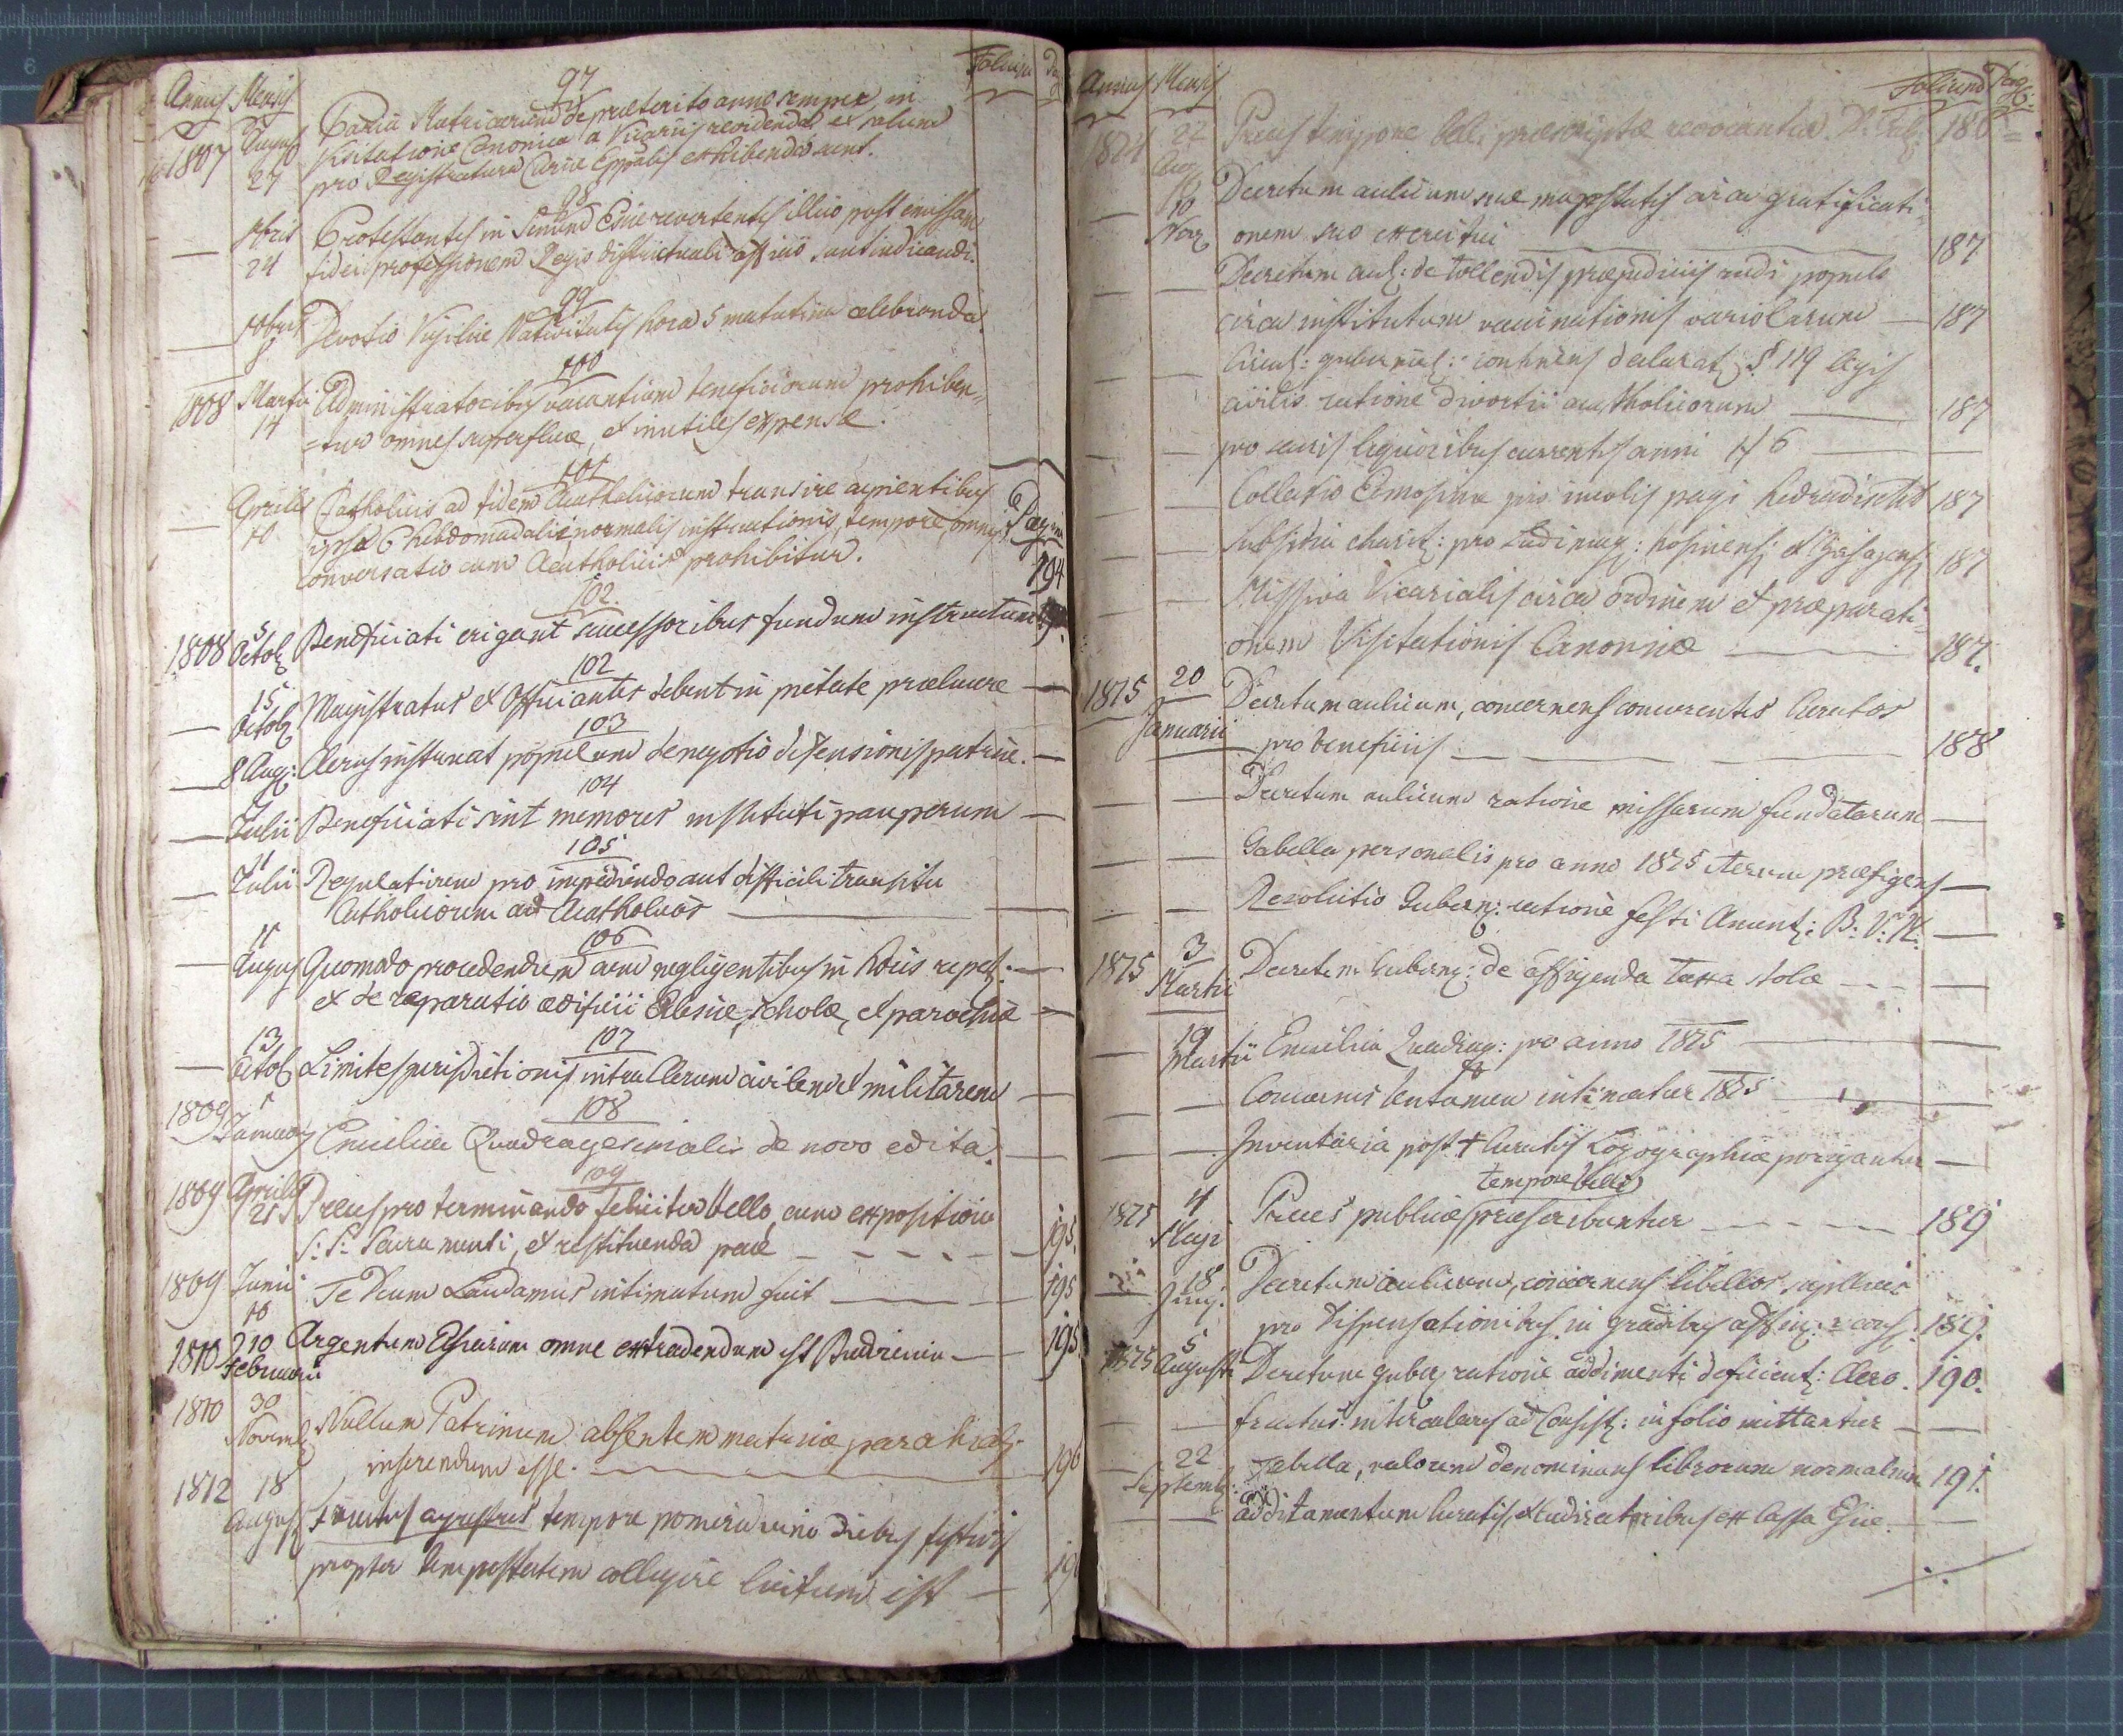 Annus Mensis Folium Pag
97
1807 August Paria Matricarum de praeterito anno semper in
27 Visitatione Canonica a Vicariis revidenda et solum
pro Registratura Curiae Eppalis exhibenda sunt.
98
Protestantes in Sinum Eccliae revertentes illico post emissam
24 fidei professionem Regio districtuali officio sunt indicandi.
99
Devotio Vigiliae Nativitatis hora 5 matutina celebranda.
8
100
1808 Martii Administratoribus vacantium beneficiorum prohiben=
14 =tur omnes superfluae, et inutiles expensae.
101
Aprilis Catholicis ad fidem Acatholicorum transire cupientibus
10 ipso 6 hebdomadalis normalis instructionis tempore, omnis Pagina
conversatio cum Acatholicis prohibitur. 194
102.
5
1808 Octob Beneficiati erigant successoribus fundum instructum
102
15
— Octob Magistratus et Officiantes debent in pietate praelucere —
103
— 8 Aug: Clerus instruat populum de negotio defensionis patriae. —
104
— Julii Beneficiati sint memores instituti pauperum —
105
21
— Julii Regulativum pro impediendo aut difficili transitu
Catholicorum ad Acatholicos — —
106
11
— August Quomodo procedendum cum negligentibus in horis repet: —
et de reparatio aedificii Eclesiae, scholae, et parochiae —
107
13
— Octob Limites jurisdictionis intra Clerum civilem et militarem —
108
1
1809 January Encilica Quadragesimalis de novo edita. —
109
1809 Aprilis Preces pro terminando feliciter bello, cum expositione
21 S: S: Sacramenti, et restituenda pace — — — — — 195.
1809 Junii Te Deum Laudamus intimatum fuit — — 195
10
1810 210 Argentum Eccliarum omne extradendum est — 195
Februarii
1810 30
Novemb Nullum Patrinum absentem matricae parochiali
inserendum esse. — 196
1812 18
August Fructus agrestres tempore pomeridiano diebus festivis
propter tempestatem collegire licitum est — 19
Annus Mensis Folium Pag:
1824 22 Preces tempore belli praescriptae revocantur 186
Aug
10 Decretum aulicum suae majestatis circa gratificati=
Nov onem suo exercitui — 187
— — Decretum aul: de tollendis praejudiciis rudi populo
circa institutum vaccinationis variolarum — 187
— — Circul: gubernial: continens declarat: § 119 legis
civilis ratione divortii acatholicorum — 187
— — pro sacris liquoribus currentis anni 1f 6 — —
— — Collectio Eemosinae pro incolis pagi 187
— — Subsidia charit: pro Ludimag: 187
— — Missiva Vicarialis circa ordinem et praeparati=
onem Visitationis Canonicae — 187.
1825 20 Decretum aulicum, concernens concurrentes Curatos
Januarii pro beneficiis — — — 188
— — Decretum aulicum ratione missarum fundatarum —
— — Gabella personalis pro anno 1825 iterum praefigens —
— — Resolutio Gubern: ratione festi Anunt: B: V: M: —
1825 3 Decretum Gubern: de affigenda taxa stolae — — —
Martii
— 19 Encilica Quadrag: pro anno 1825 — —
Martii
— — Concursus tentamen intimatur 1825 —
— — Inventaria post † Curatis Logographiae porrigantur —
tempore belli
1825 4 Preces publicae praescribuntur — — — — 189
Maji
18 Decretum aulicum, concernens libellos supplices
— Junj. pro Dispensationibus in gradibus affin: et cons: 189.
1825 5
Augusti Decretum Gubern ratione addimenti deficient: Clero. 190.
— — fructus intercalares ad Consist: in folio mittantur — —
— 22 Tabella, valorem denominans librorum normalium 191.
Septemb:
— — additamentum Curatis, et Ludirectoribus ex Cassa Ecliae. — —